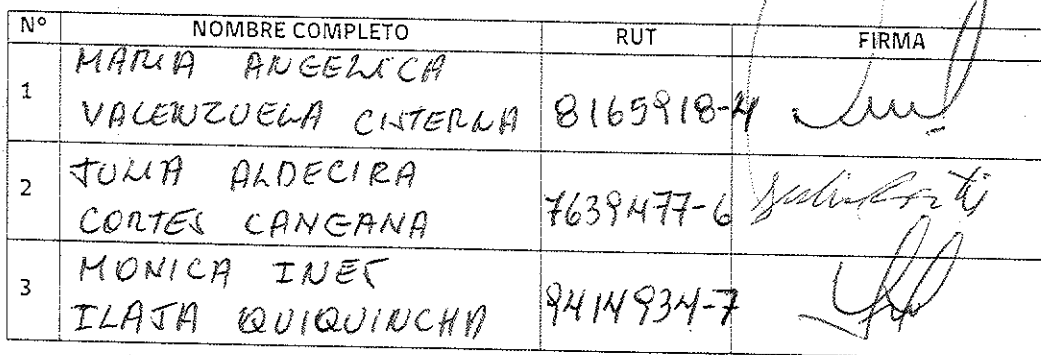 N° NOMBRE COMPLETO RUT FIRMA
1 MARIA ANGELICA
VALENZUELA CISTERNA 8165918-4
2 JULIA ALDECIRA
CORTES CANGANA 7639477-6 Julia Cortés
3 MONICA INES
ILAJA QUIQUINCHA 9414934-7